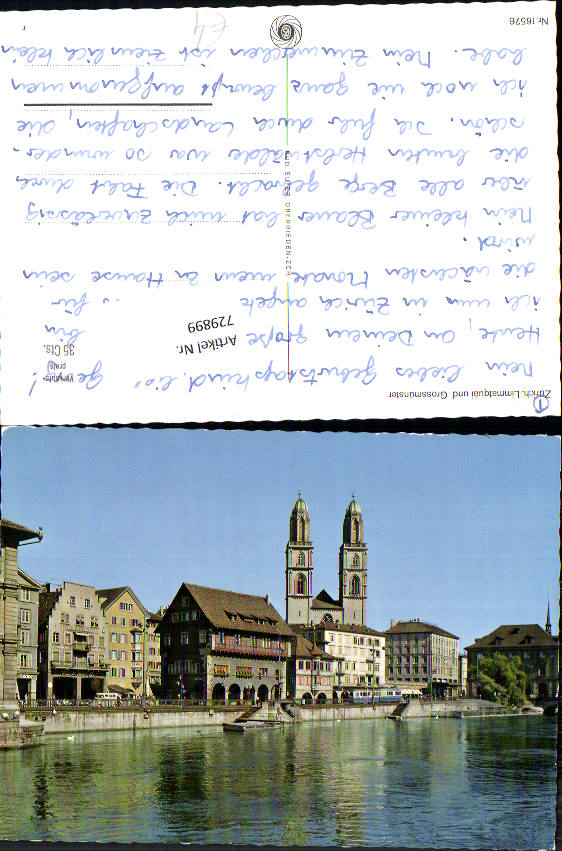 ① Zürich. Limmatquai und Grossmünster
Mein liebes Geburtstagskind
Verkaufs-
preis
35 Cts.
Artikel Nr.
729899
Heute, an Deinem große bin
ich nun in Zürich für
die nächsten Monate mein zu Hause sein
wird.
Mein kleiner Blauer hat mich zuverlässig
über alle Berge gebracht. Die Fahrt durch
die bunten Herbstwälder war so wunder-
schön. Ich fuhr durch Landschaften, die
ich noch nie ganz bewußt aufgenommen
habe. Mein Zimmerchen ist ziemlich klein
OBERRIEDEN-ZCH
Nr. 16576
€4